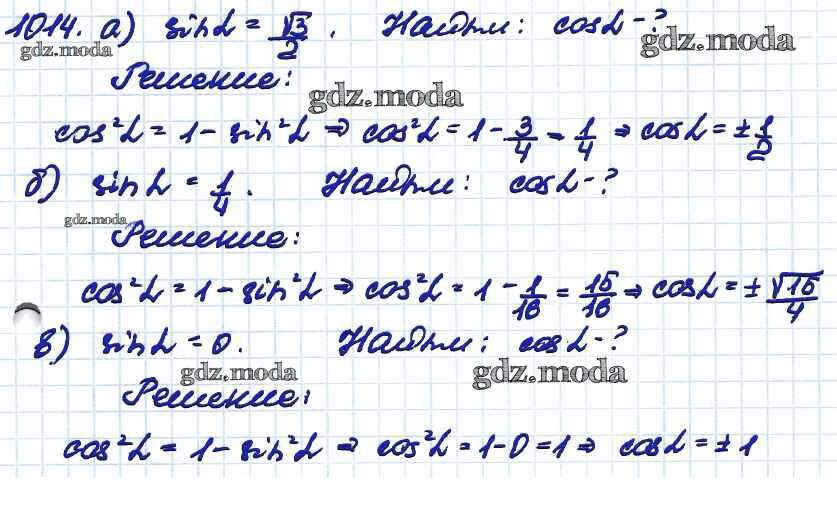 1014. а) sin α = √3/2. Найти: cos α - ?
gdz.moda gdz.moda
Решение:
gdz.moda
cos²α = 1 - sin²α ⇒ cos²α = 1 - 3/4 = 1/4 ⇒ cos α = ± 1/2
б) sin α = 1/4. Найти: cos α - ?
gdz.moda
Решение:
cos²α = 1 - sin²α ⇒ cos²α = 1 - 1/16 = 15/16 ⇒ cos α = ± √15/4
в) sin α = 0. Найти: cos α - ?
gdz.moda gdz.moda
Решение:
cos²α = 1 - sin²α ⇒ cos²α = 1 - 0 = 1 ⇒ cos α = ± 1